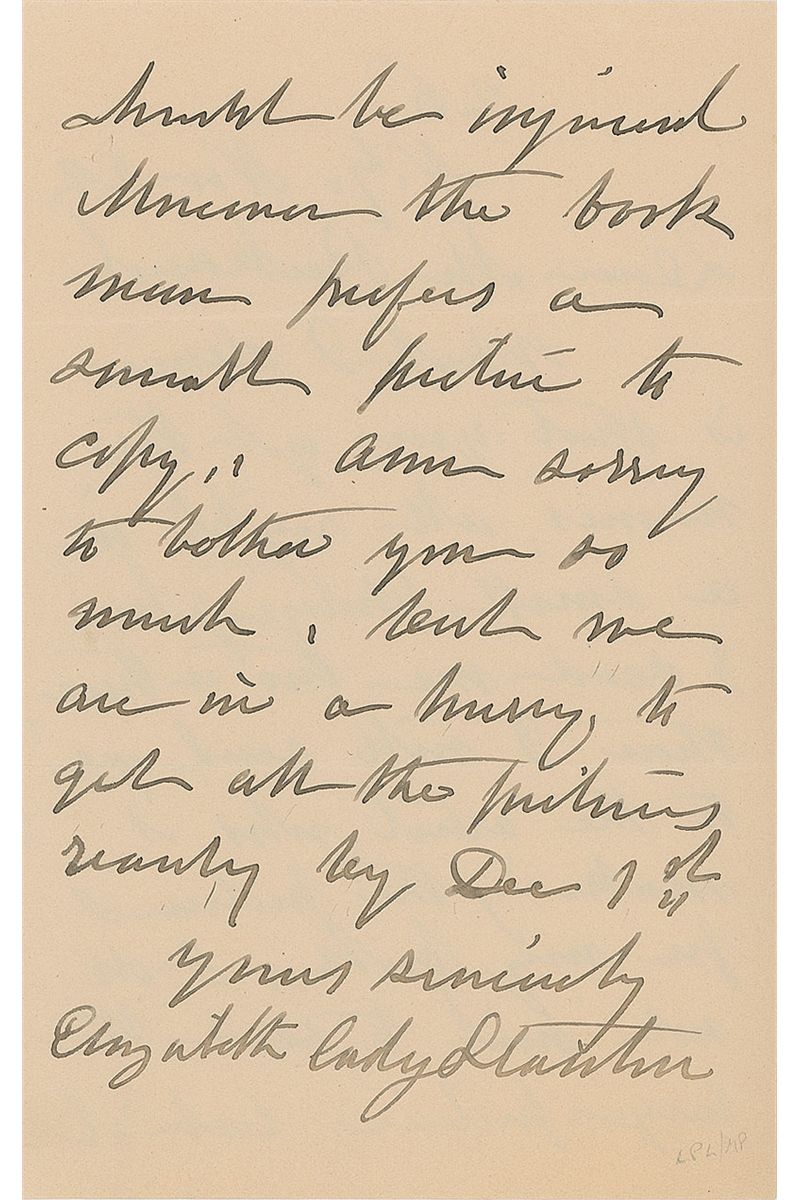 should be injured
Moreover the book
man prefers a
small picture to
copy, I am sorry
to bother you so
much, but we
are in a hurry, to
get all the pictures
ready by Dec 1st
yours sincerely
Elizabeth Cady Stanton